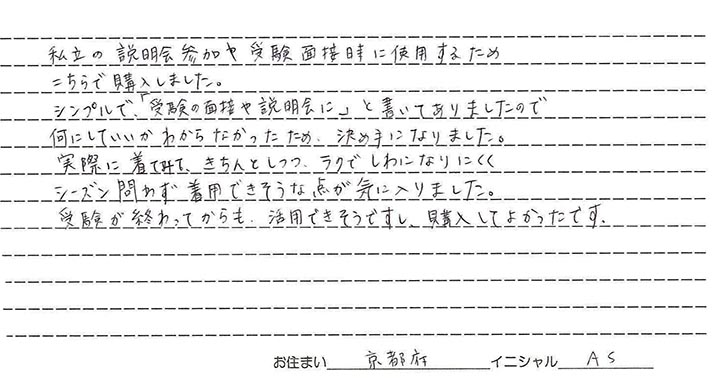 私立の説明会参加や受験面接時に使用するため
こちらで購入しました。
シンプルで、「受験の面接や説明会に」と書いてありましたので
何にしていいかわからなかったため、決め手になりました。
実際に着てみて、きちんとしつつ、ラクでしわになりにくく
シーズン問わず着用できそうな点が気に入りました。
受験が終わってからも、活用できそうですし、購入してよかったです。
お住まい 京都府 イニシャル AS